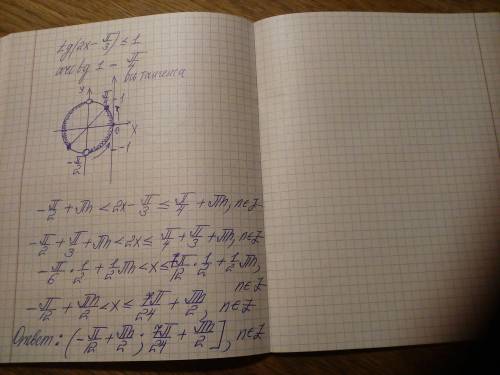 tg(2x - π/3) ≤ 1
arctg 1 = π/4
ось тангенса
y
π/4
1
0
x
-π/2
-1
-π/2 + πn < 2x - π/3 ≤ π/4 + πn, n∈Z
-π/2 + π/3 + πn < 2x ≤ π/4 + π/3 + πn, n∈Z
-π/6 · 1/2 + 1/2 πn < x ≤ 7π/12 · 1/2 + 1/2 πn,
n∈Z
-π/12 + πn/2 < x ≤ 7π/24 + πn/2, n∈Z
Ответ: (-π/12 + πn/2; 7π/24 + πn/2], n∈Z